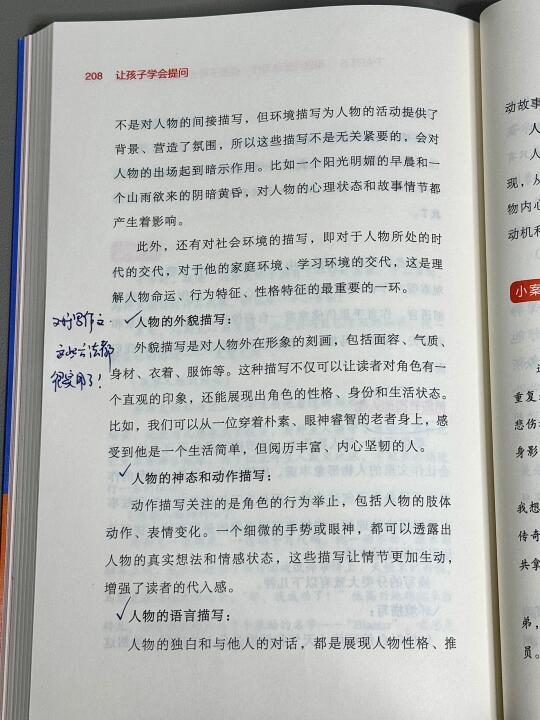 208 让孩子学会提问
不是对人物的间接描写，但环境描写为人物的活动提供了
背景、营造了氛围，所以这些描写不是无关紧要的，会对
人物的出场起到暗示作用。比如一个阳光明媚的早晨和一
个山雨欲来的阴暗黄昏，对人物的心理状态和故事情节都
产生着影响。
此外，还有对社会环境的描写，即对于人物所处的时
代的交代，对于他的家庭环境、学习环境的交代，这是理
解人物命运、行为特征、性格特征的最重要的一环。
人物的外貌描写：
外貌描写是对人物外在形象的刻画，包括面容、气质、
身材、衣着、服饰等。这种描写不仅可以让读者对角色有一
个直观的印象，还能展现出角色的性格、身份和生活状态。
比如，我们可以从一位穿着朴素、眼神睿智的老者身上，感
受到他是一个生活简单，但阅历丰富、内心坚韧的人。
人物的神态和动作描写：
动作描写关注的是角色的行为举止，包括人物的肢体
动作、表情变化。一个细微的手势或眼神，都可以透露出
人物的真实想法和情感状态，这些描写让情节更加生动，
增强了读者的代入感。
人物的语言描写：
人物的独白和与他人的对话，都是展现人物性格、推
对写作文
这些方法都
很实用了！
动故事
人
现，从
物内心
动机和
小案
重复
悲伤
身影
我想
传奇
共拿
弟，
员。